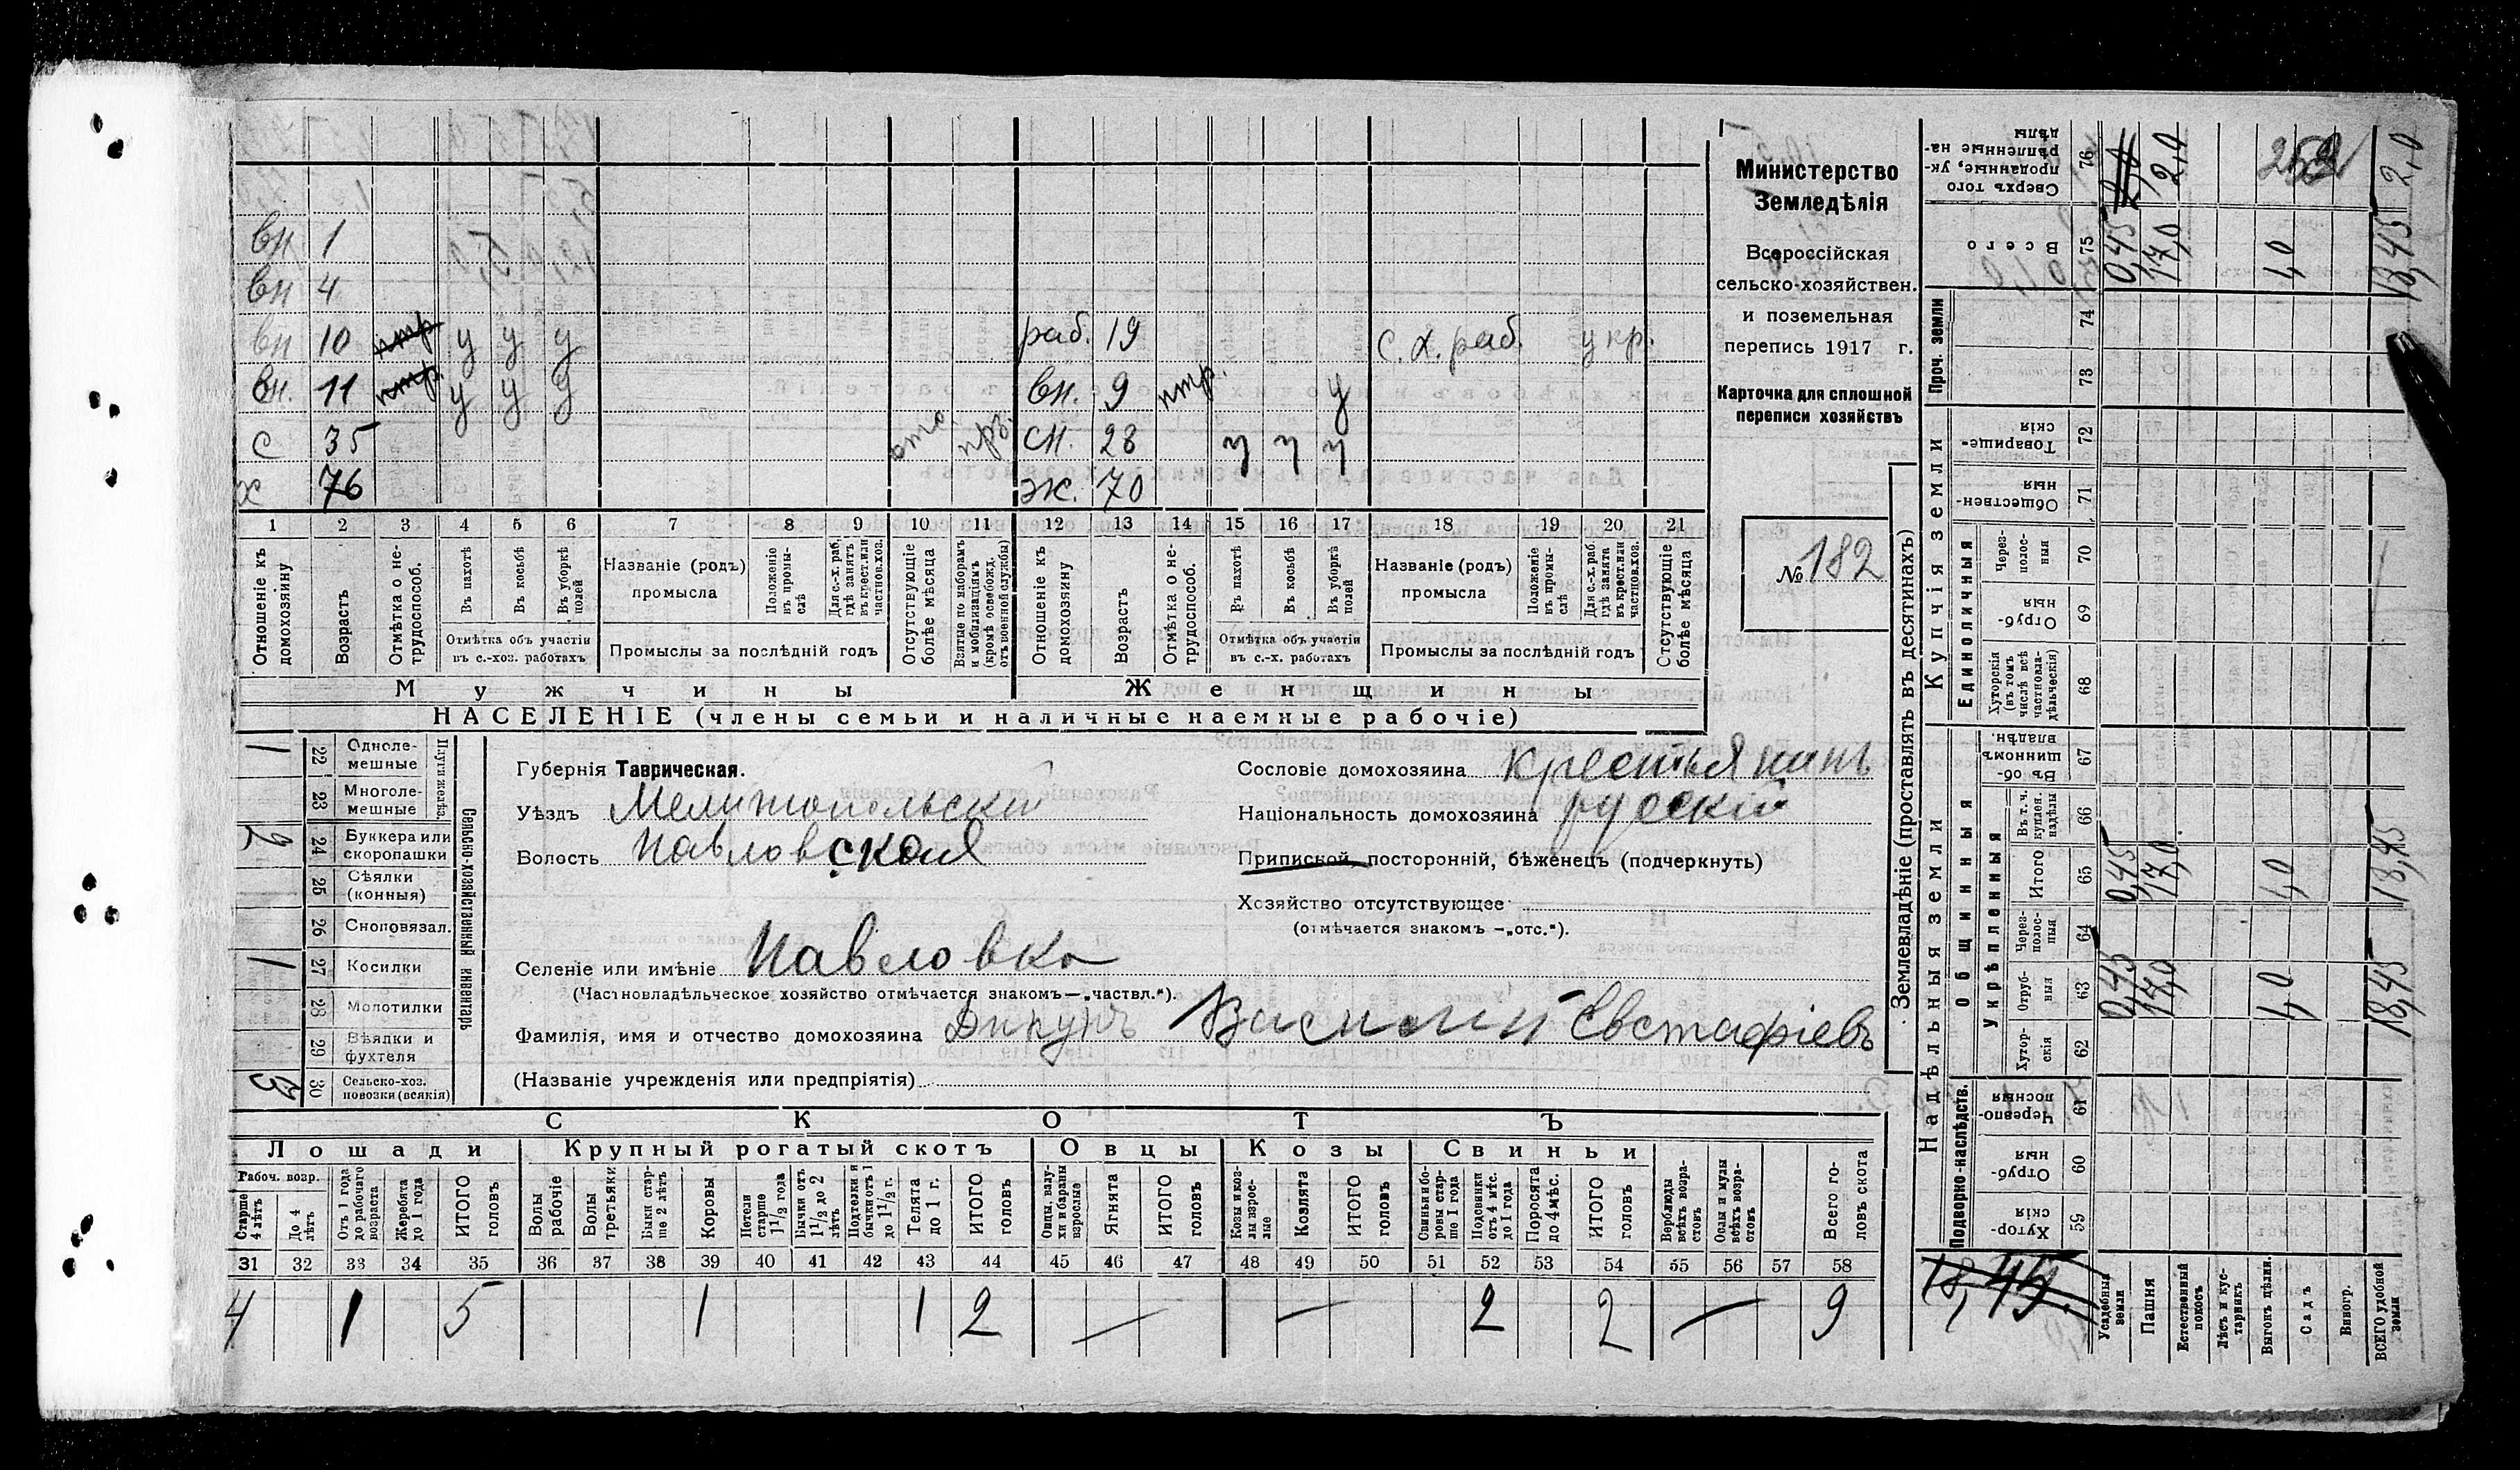 вн 1
вн 4
вн 10 нтр у у у раб. 19 с. х. раб. у кр.
вн. 11 нтр. у у у вн. 9 нтр. у
с 35 отс. пр. сн. 28 у у у
х 76 ж. 70
1 2 3 4 5 6 7 8 9 10 11 12 13 14 15 16 17 18 19 20 21
Отношеніе къ домохозяину
Возрастъ
Отмѣтка о нетрудоспособ.
Въ пахотѣ
Въ косьбѣ
Въ уборкѣ полей
Отмѣтка объ участіи въ с.-хоз. работахъ
Названіе (родъ) промысла
Положеніе въ промыслѣ
Для с.-х. раб. гдѣ занятъ въ крест. или частнов. хоз.
Промыслы за послѣдній годъ
Отсутствующіе болѣе мѣсяца
Взятые по наборамъ и мобилизаціямъ (кромѣ освобожд. отъ военной службы)
Отношеніе къ домохозяину
Возрастъ
Отмѣтка о нетрудоспособ.
Въ пахотѣ
Въ косьбѣ
Въ уборкѣ полей
Отмѣтка объ участіи въ с.-х. работахъ
Названіе (родъ) промысла
Положеніе въ промыслѣ
Для с.-х. раб. гдѣ занята въ крест. или частнов. хоз.
Промыслы за послѣдній годъ
Отсутствующіе болѣе мѣсяца
Мужчины Женщины
НАСЕЛЕНІЕ (члены семьи и наличные наемные рабочіе)
Министерство
Земледѣлія
Всероссійская
сельско-хозяйствен.
и поземельная
перепись 1917 г.
Карточка для сплошной
переписи хозяйствъ
№ 182
1 22 Одноле-мешные
23 Многоле-мешные
Плуги желѣз.
2 24 Буккера или скоропашки
25 Сѣялки (конныя)
26 Сноповязал.
1 27 Косилки
28 Молотилки
29 Вѣялки и фухтеля
3 30 Сельско-хоз. повозки (всякія)
Сельско-хозяйственный инвентарь
Губернія Таврическая.
Уѣздъ Мелитопольскій
Волость Павловская
Селеніе или имѣніе Павловка
(Частновладѣльческое хозяйство отмѣчается знакомъ—„частвл.“).
Фамилія, имя и отчество домохозяина Дикунъ Василій Евстафіевъ
(Названіе учрежденія или предпріятія)
Сословіе домохозяина крестьянинъ
Національность домохозяина русскій
Приписной, посторонній, бѣженецъ (подчеркнуть)
Хозяйство отсутствующее
(отмѣчается знакомъ —„отс.“).
СКОТЪ
Лошади Крупный рогатый скотъ Овцы Козы Свиньи
Рабоч. возр.
Старше 4 лѣтъ
До 4 лѣтъ
Отъ 1 года до рабочаго возраста
Жеребята до 1 года
ИТОГО головъ
Волы рабочіе
Волы третьяки
Быки старше 2 лѣтъ
Коровы
Нетели старше 1½ года
Бычки отъ 1½ до 2 лѣтъ
Подтелки и бычки отъ 1 до 1½ г.
Телята до 1 г.
ИТОГО головъ
Овцы, валухи и бараны взрослые
Ягнята
ИТОГО головъ
Козы и козлы взрослые
Козлята
ИТОГО головъ
Свиньи и боровы старше 1 года
Подсвинки отъ 4 мѣс. до 1 года
Поросята до 4 мѣс.
ИТОГО головъ
Верблюды всѣхъ возрастовъ
Ослы и мулы всѣхъ возрастовъ
Всего головъ скота
31 32 33 34 35 36 37 38 39 40 41 42 43 44 45 46 47 48 49 50 51 52 53 54 55 56 57 58
4 1 5 1 1 2 — — 2 2 — 9
Землевладѣніе (проставлять въ десятинахъ)
Надѣльныя земли Купчія земли Проч. земли
Подворно-наслѣдств.
Общинныя
Укрѣпленныя
Единоличныя
59 Хуторскія
60 Отрубныя
61 Черезполосныя
62 Хуторскія
63 Отрубныя 0,45 17,0 1,0 18,45
64 Черезполосныя
65 Итого 0,45 17,0 1,0 18,45
66 Въ т. ч. куплен. надѣлы
67 Въ общинномъ владѣн.
68 Хуторскія (въ томъ числѣ всѣ частновладѣльческія)
69 Отрубныя
70 Черезполосныя
71 Общественныя
72 Товарищескія
73
74
75 Всего 0,45 17,0 1,0 18,45
76 Сверхъ того проданные, укрѣпленные надѣлы 2,0 2,0 2,0
253
18,45.
Усадебныя земли
Пашня
Естественный покосъ
Лѣсъ и кустарникъ
Выгонъ цѣлин.
Садъ
Виногр.
ВСЕГО удобной земли